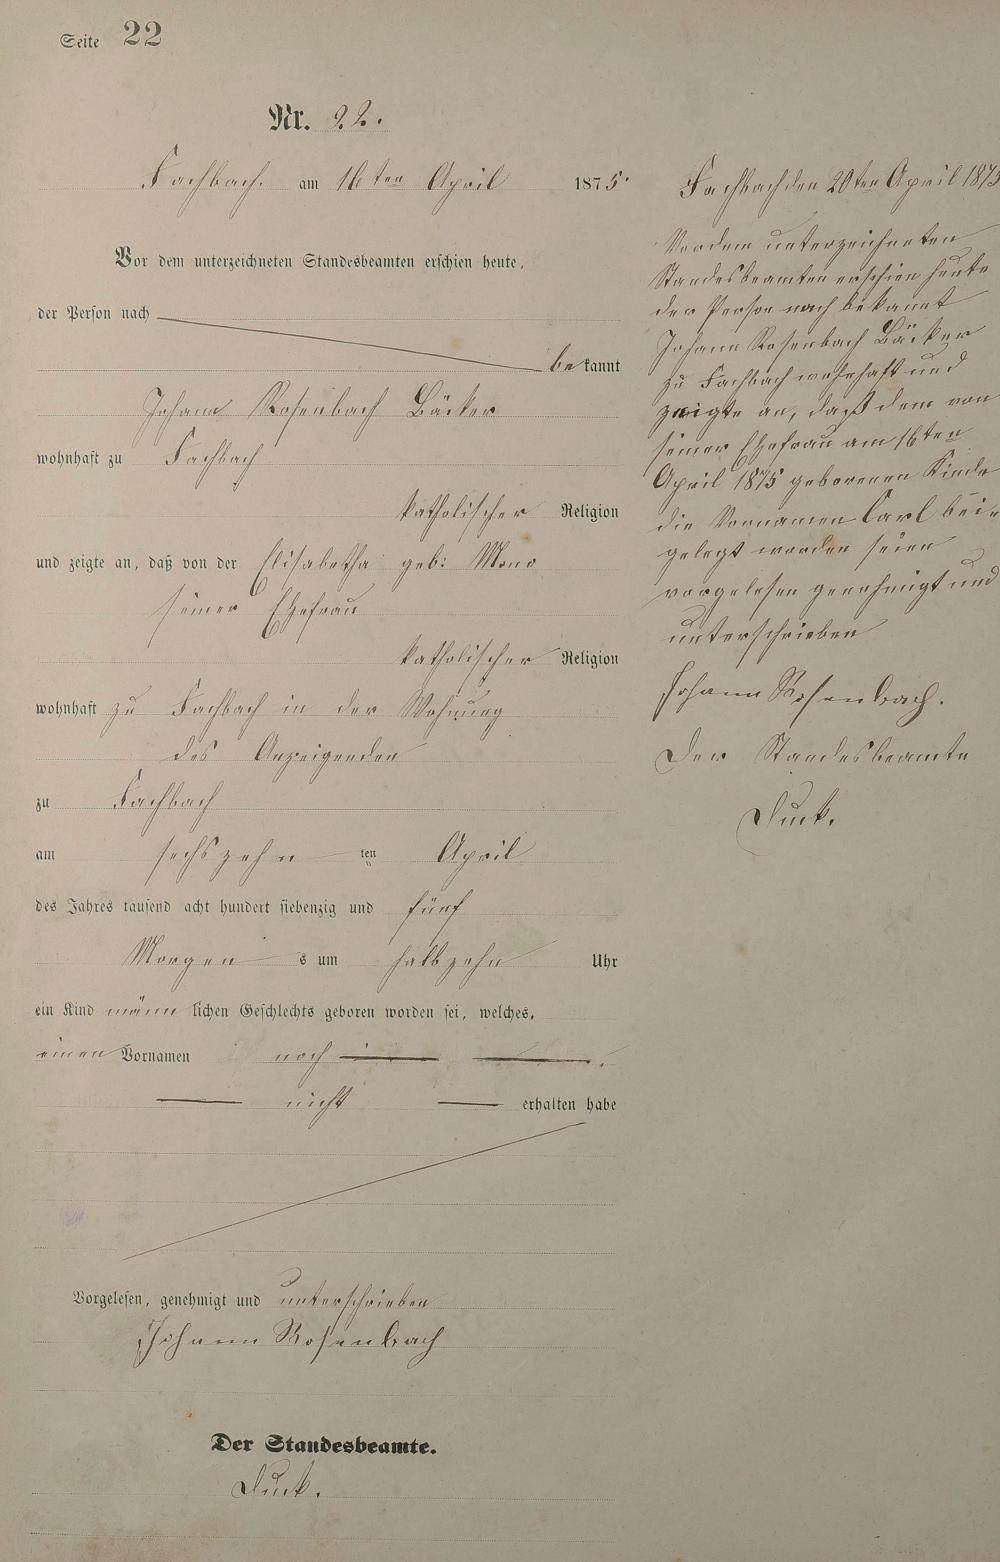 Seite 22
Nr. 22.
Fachbach. am 16ten April 1875.
Vor dem unterzeichneten Standesbeamten erschien heute,
der Person nach
bekannt
Johann Rosenbach Bäcker
wohnhaft zu Fachbach
katholischer Religion
und zeigte an, daß von der Elisabetha geb: Mono
seiner Ehefrau
katholischer Religion
wohnhaft zu Fachbach in der Wohnung
des Anzeigenden
zu Fachbach
am sechszehn ten April
des Jahres tausend acht hundert siebenzig und fünf
Morgens um halbzehn Uhr
ein Kind männlichen Geschlechts geboren worden sei, welches,
einen Vornamen noch
nicht erhalten habe
Vorgelesen, genehmigt und unterschrieben
Johann Rosenbach
Der Standesbeamte.
Duck.
Fachbach den 20ten April 1875
Vor dem unterzeichneten
Standesbeamten erschien heute
der Person nach bekannt
Johann Rosenbach Bäcker
zu Fachbach wohnhaft und
zeigte an, daß dem von
seiner Ehefrau am 16ten
April 1875 geborenen Kinde
die Vornamen Carl bei-
gelegt worden seien
vorgelesen genehmigt und
unterschrieben
Johann Rosenbach.
Der Standesbeamte
Duck.